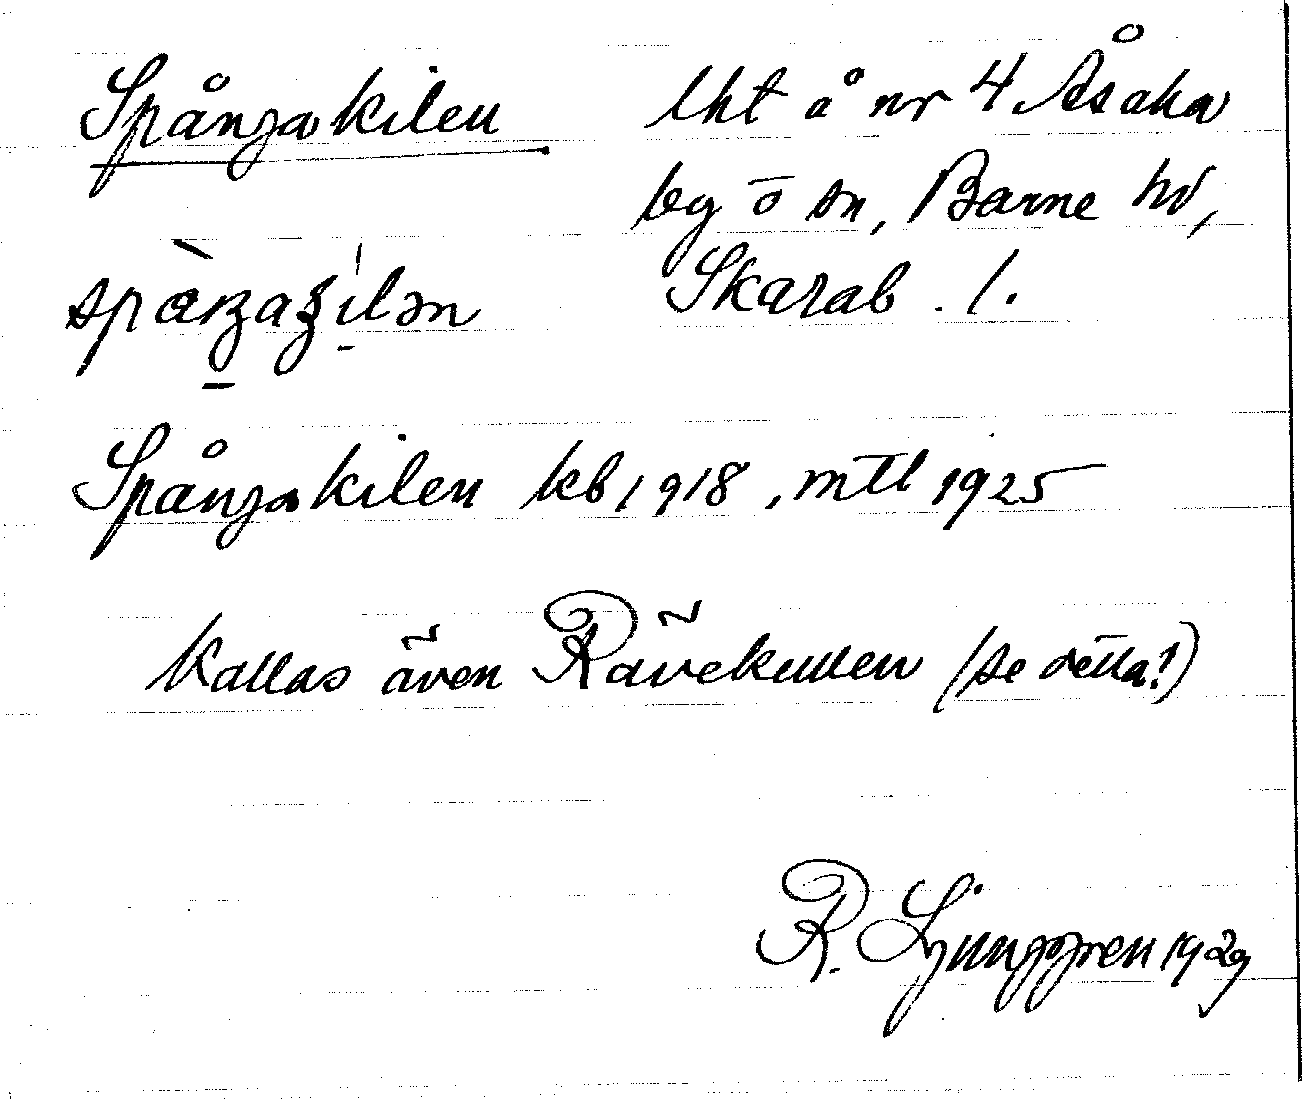 Spångakilen lht å nr 4 Åsaka
by o sn, Barne hd,
Skarab. l.
Spångakilen kb 1918, mtl 1925
Kallas även Rävekullen (se detta!)
R. Ljunggren 1929